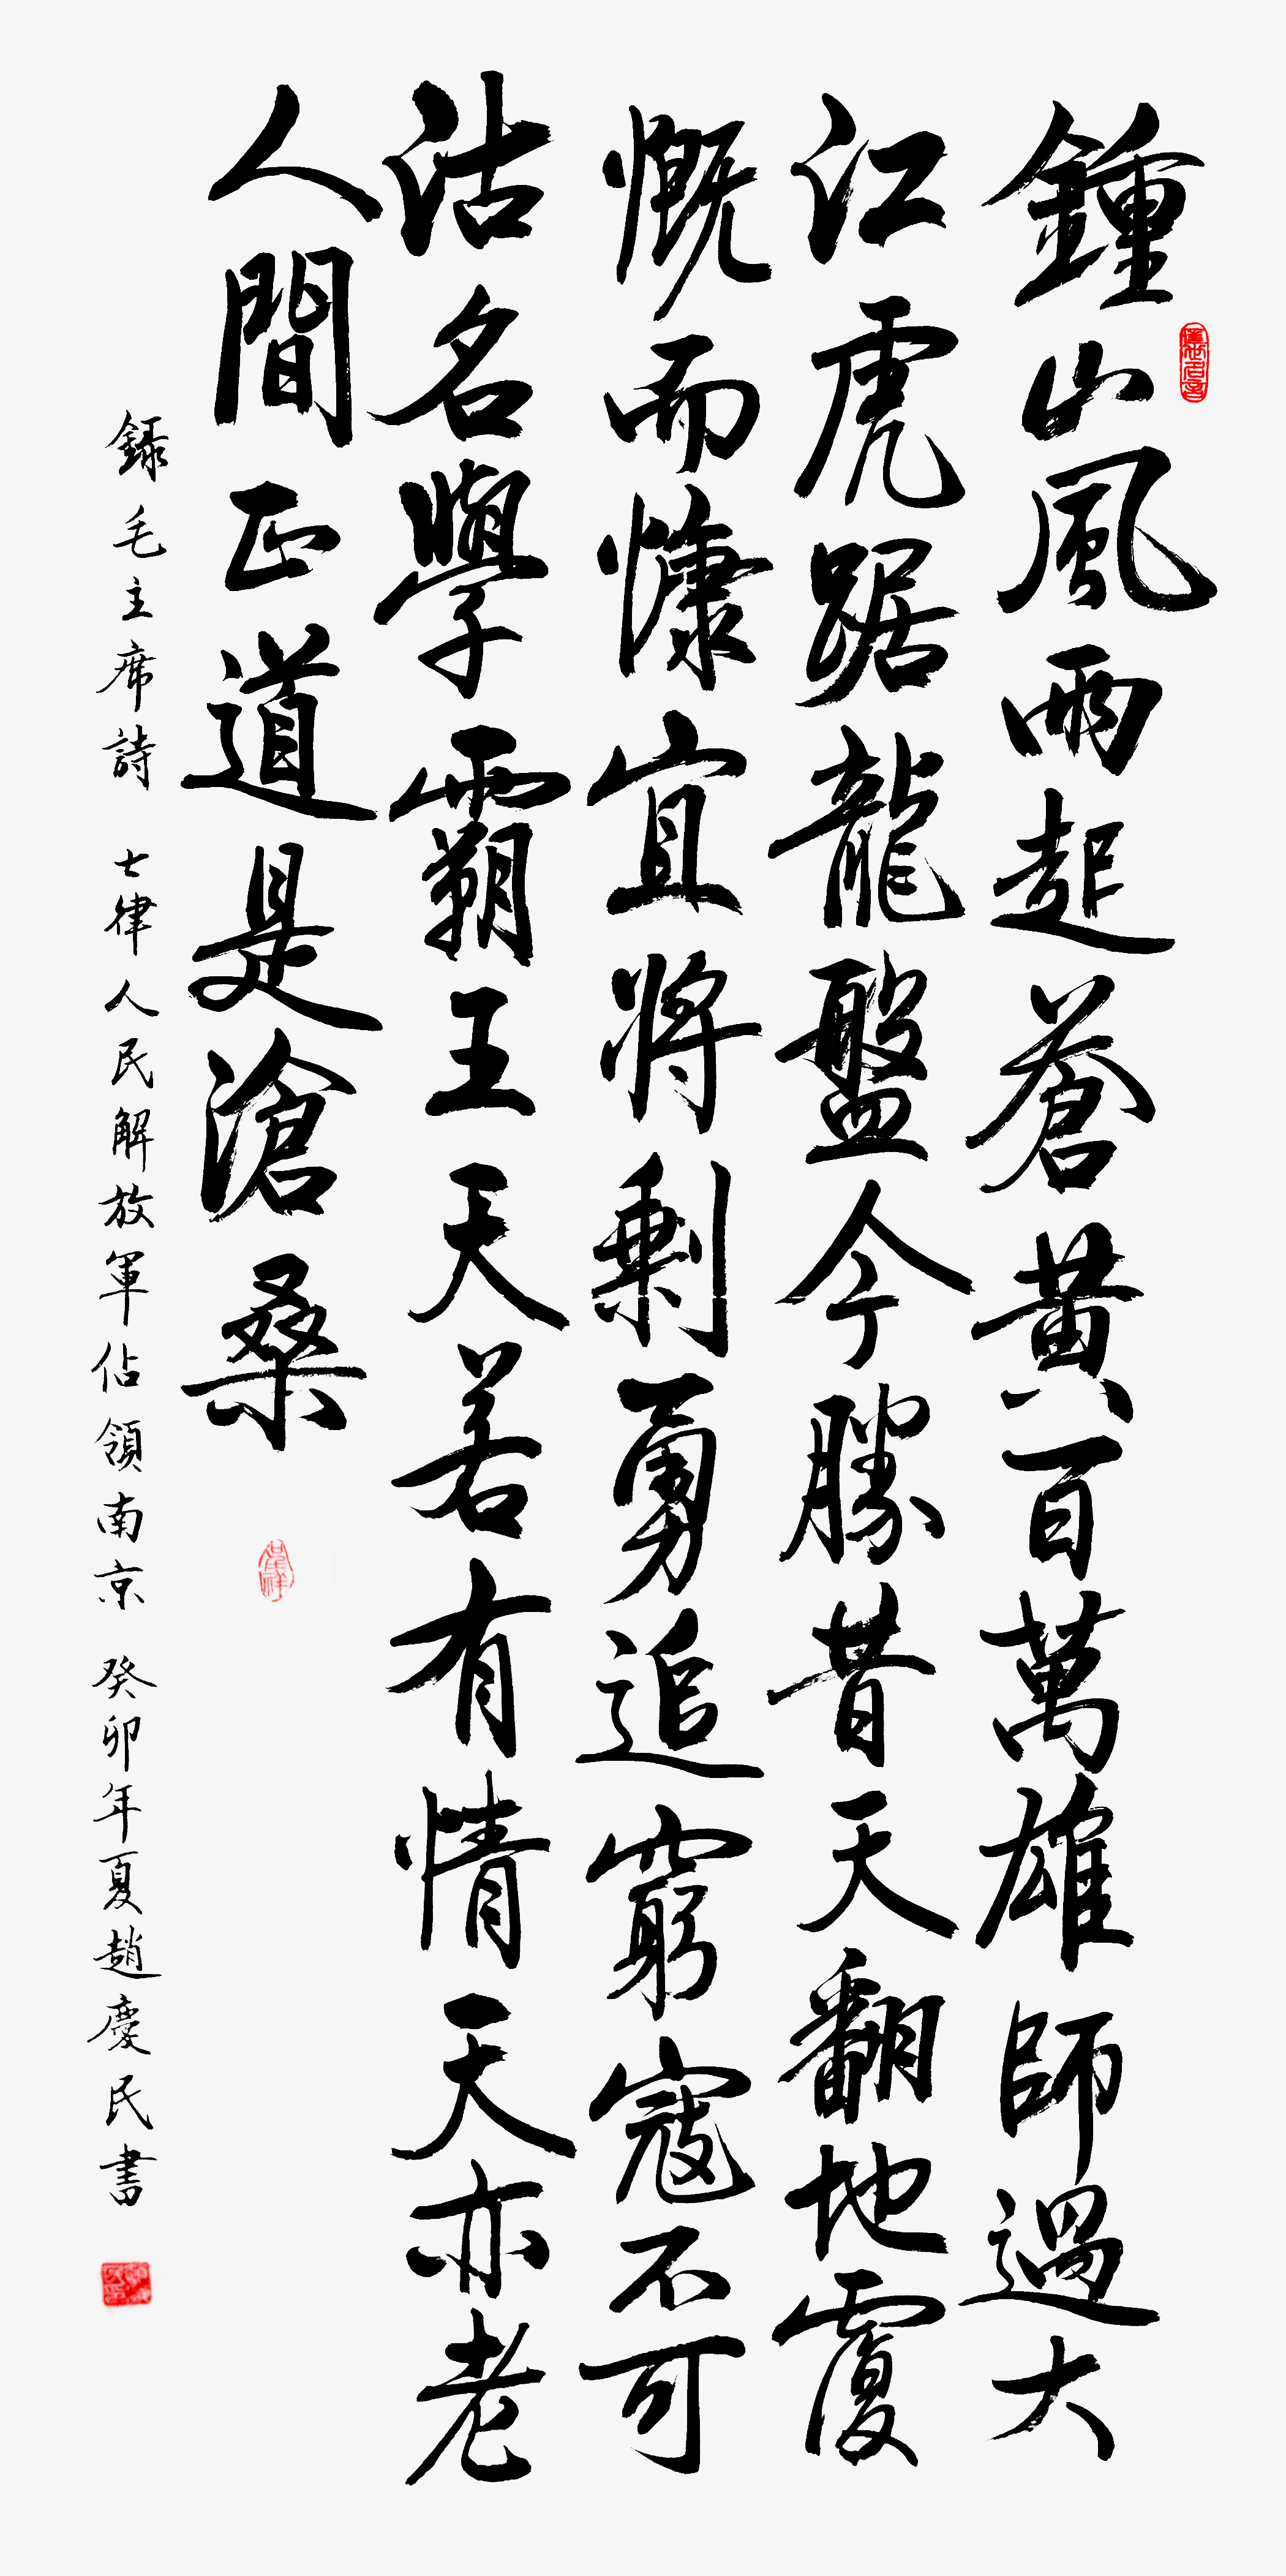 鍾山風雨起蒼黃百萬雄師過大
江虎踞龍盤今勝昔天翻地覆
慨而慷宜將剩勇追窮寇不可
沽名學霸王天若有情天亦老
人間正道是滄桑
錄毛主席詩 七律人民解放軍佔領南京 癸卯年夏趙慶民書